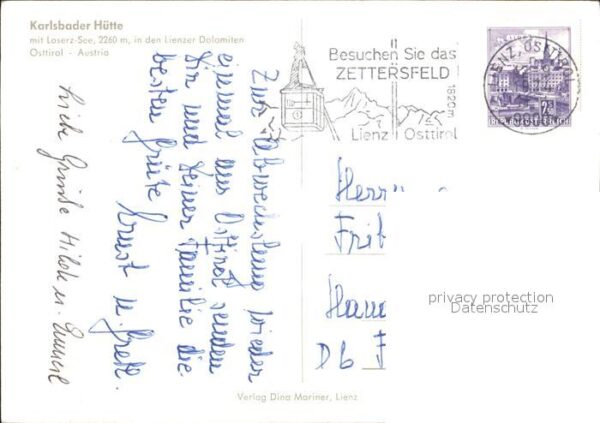 Karlsbader Hütte
mit Laserz-See, 2260 m, in den Lienzer Dolomiten
Osttirol - Austria
Besuchen Sie das
ZETTERSFELD
1820m
Lienz Osttirol
LIENZ, OSTTIROL
9900
Zur Abwechslung wieder
einmal aus Osttirol senden
Dir und Deiner Familie die
besten Grüße
Ernst u. Grete.
Liebe Grüße Hilde u.
Herr
Frit
Ham
Db F
privacy protection
Datenschutz
Verlag Dina Mariner, Lienz